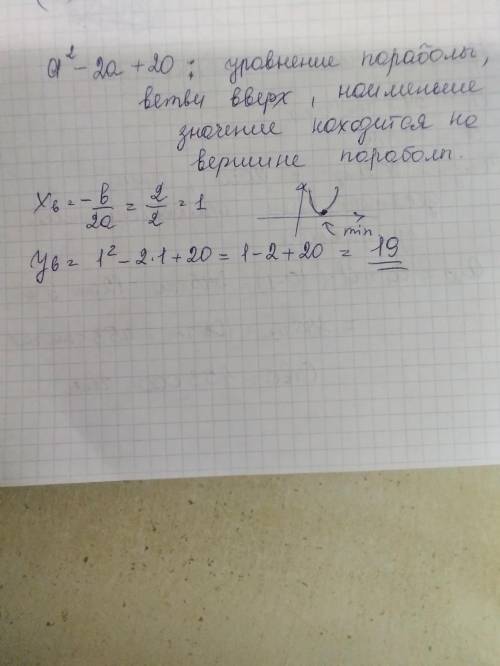 a² - 2a + 20 : уравнение параболы,
ветви вверх, наименьше
значение находится на
вершине параболп.
Xв = -в/2a = 2/2 = 1
min
Yв = 1² - 2·1 + 20 = 1 - 2 + 20 = 19